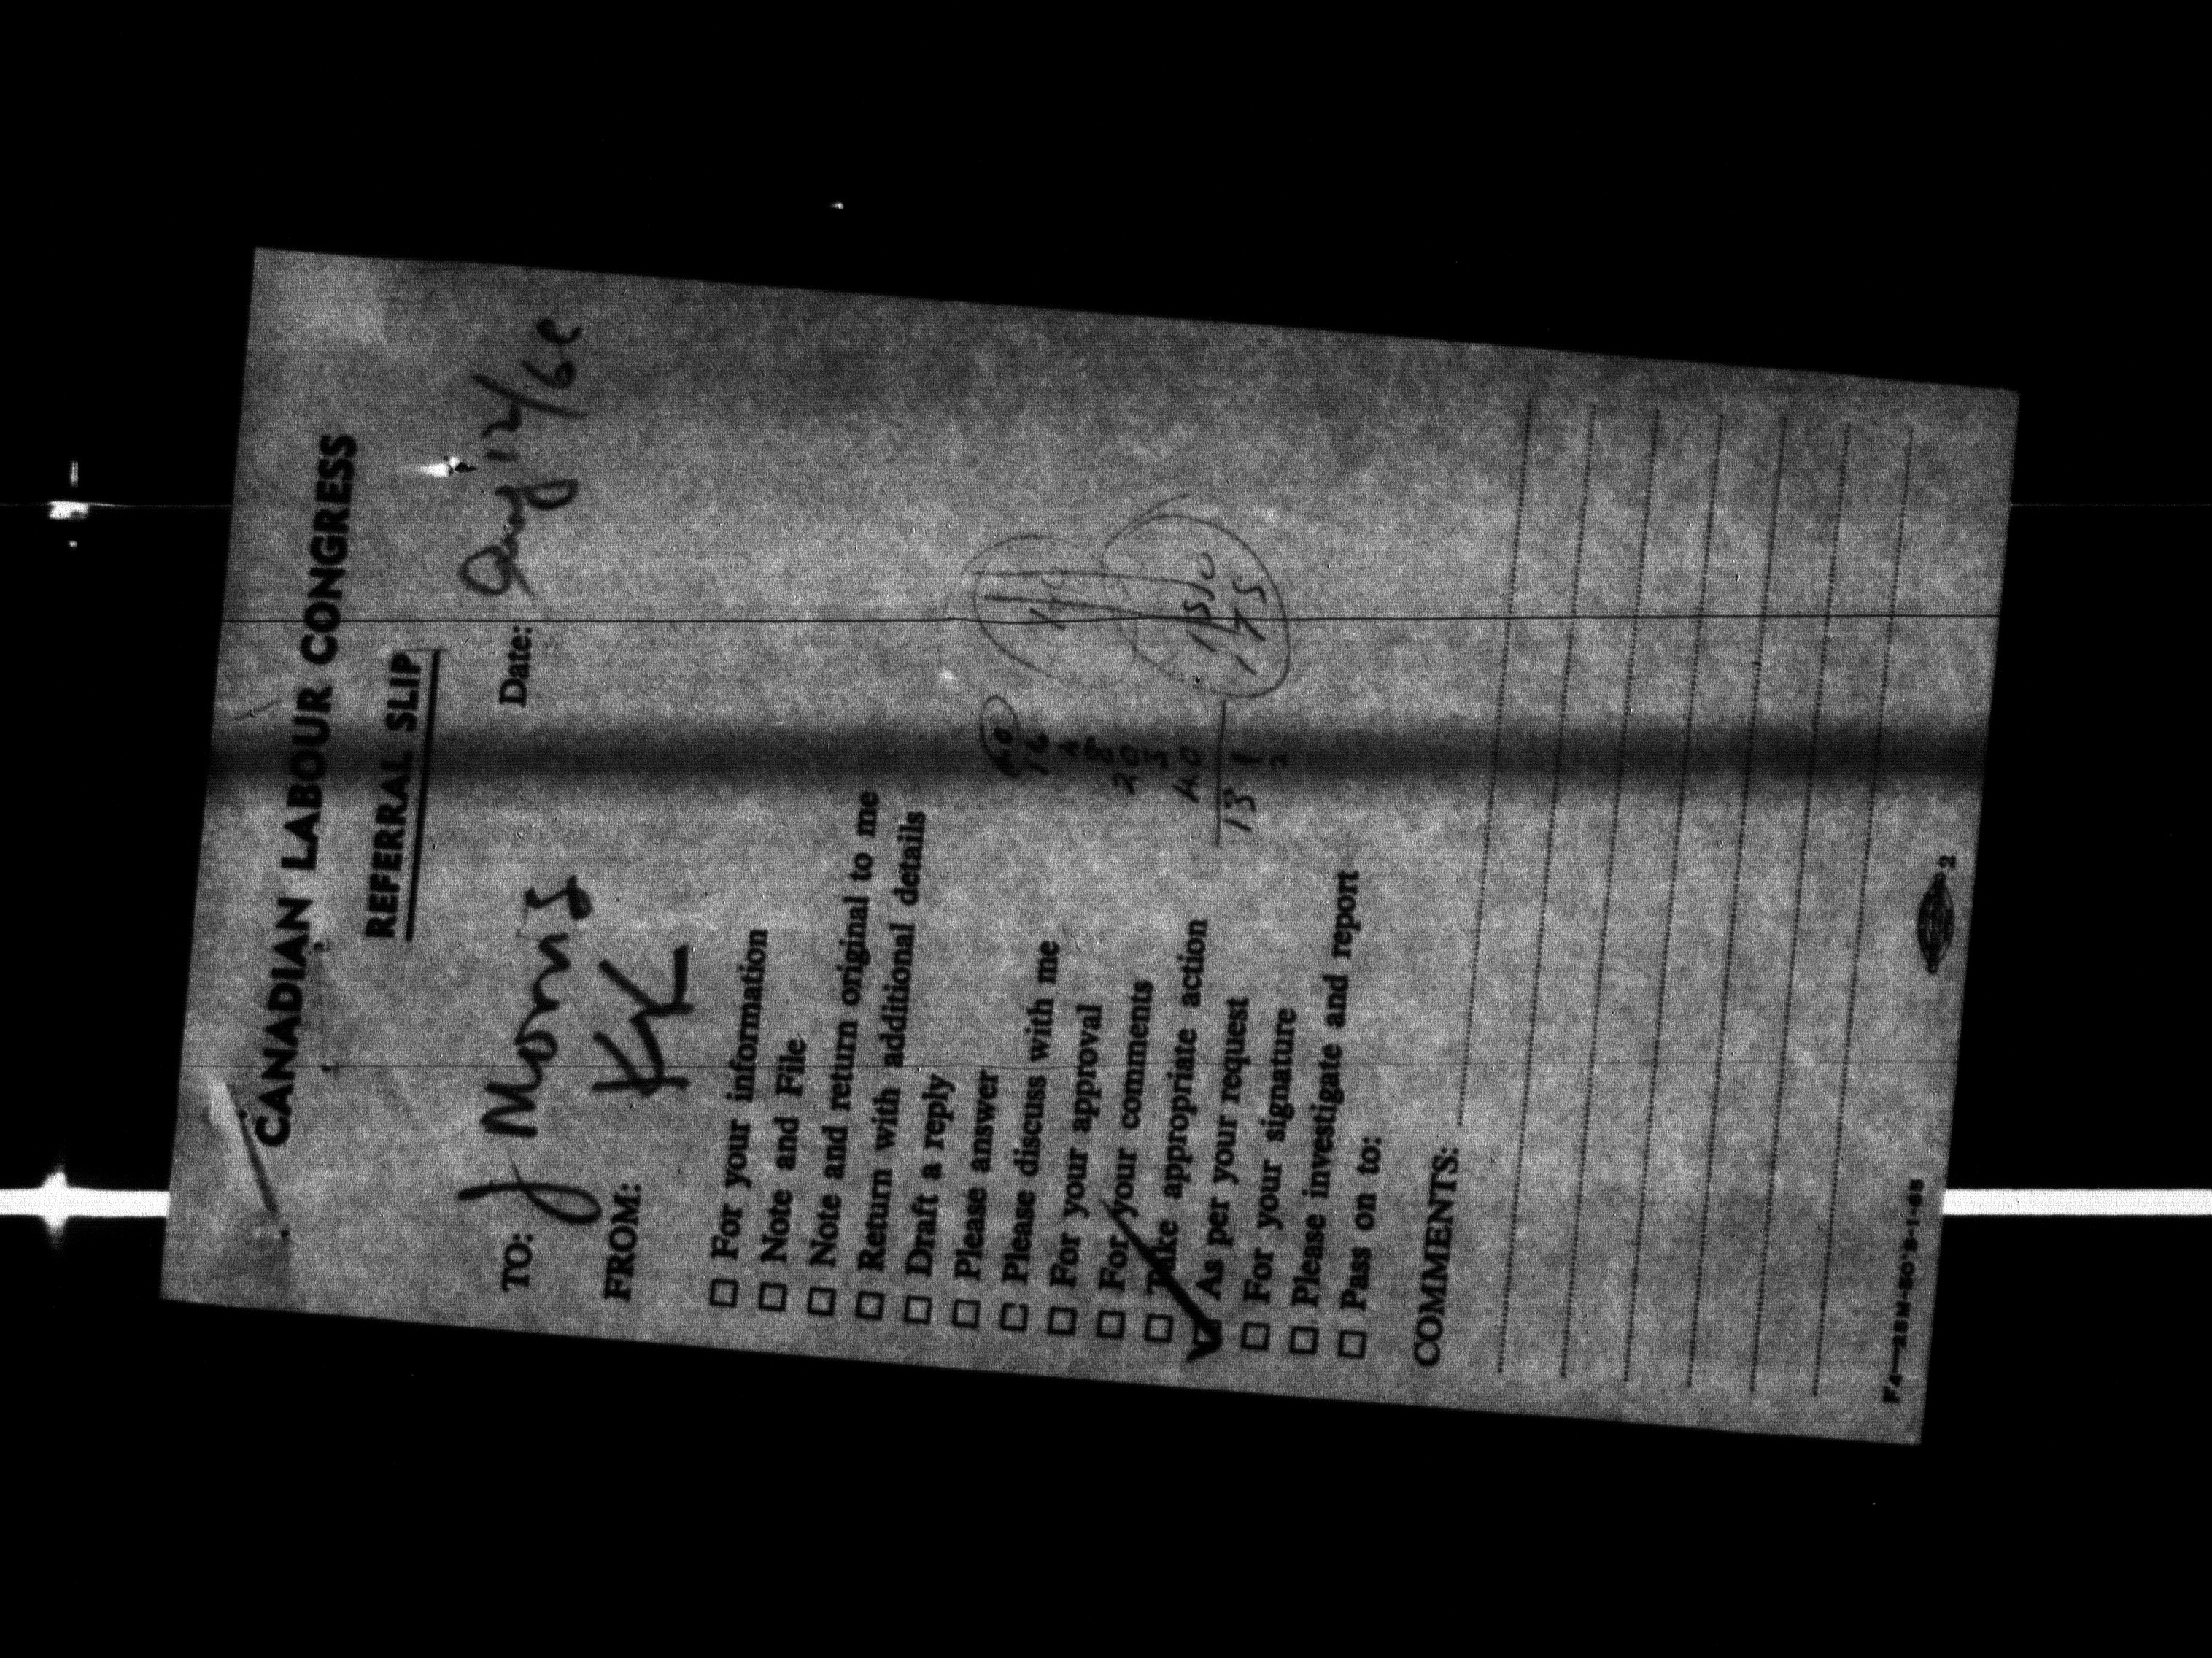 CANADIAN LABOUR CONGRESS
REFERRAL SLIP
TO: J Morris
Date: 12/6
FROM: KK
☐ For your information
☐ Note and File
☐ Note and return original to me
☐ Return with additional details
☐ Draft a reply
☐ Please answer
☐ Please discuss with me
☐ For your approval
☐ For your comments
☐ Take appropriate action
☑ As per your request
☐ For your signature
☐ Please investigate and report
☐ Pass on to:
20
5
40
13 1
2
1550
175
COMMENTS:
F4—25M-50's-1-65
2